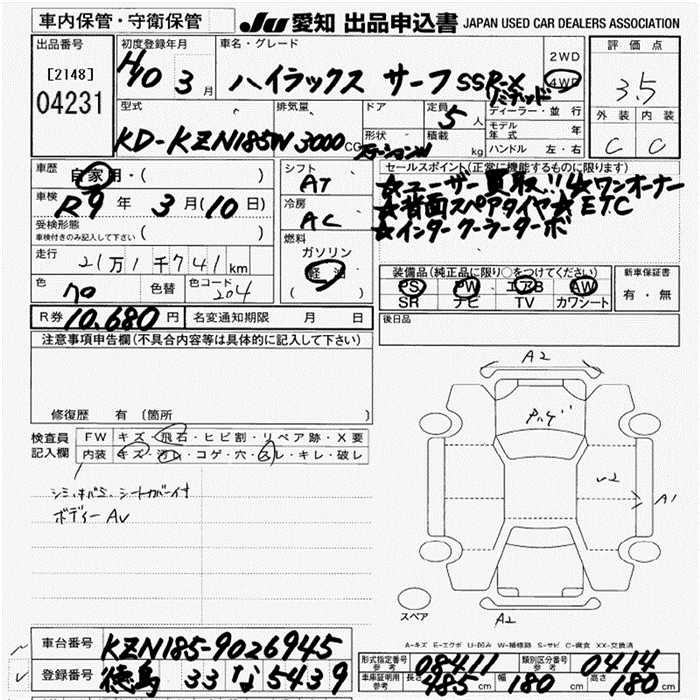 車内保管・守衛保管
JU 愛知 出品申込書 JAPAN USED CAR DEALERS ASSOCIATION
出品番号
[2148]
04231
初度登録年月
H10 3月
車名・グレード
ハイラックス サーフ SSR-X
リミテッド
2WD
4WD
評価点
3.5
外装 内装
C C
型式
KD-KZN185W
排気量
3000 CC
ドア
形状
定員
5人
積載
kg
ディーラー・並行
モデル年式 年
ハンドル 左・右
車歴
自家用・( )
車検
R9年 3月(10日)
受検形態
車検付きのみ記入して下さい ( )
走行
21万1千741km
色 色替 色コード
204
シフト
AT
冷房
AC
燃料
ガソリン
軽油
( )
セールスポイント(正常に機能するものに限ります)
☆ユーザー買取!! ☆ワンオーナー
☆背面スペアタイヤ☆ETC
☆インタークーラーターボ
装備品(純正品に限り○をつけてください)
PS PW エアB AW
SR ナビ TV カワシート
新車保証書
有・無
R券 10,680円 名変通知期限 月 日
後日品
注意事項申告欄(不具合内容等は具体的に記入して下さい)
修復歴 有 〔箇所 〕
検査員記入欄
FW キズ・飛石・ヒビ割・リペア跡・X要
内装 キズ・汚レ・コゲ・穴・スレ・キレ・破レ
シミ、キバミ、シートカバー付
ボディーAU
A2
A1
A2
スペア
A-キズ E-エクボ U-凹み W-補修跡 S-サビ C-腐食 XX-交換済
車台番号 KZN185-9026945
登録番号 徳島 33 な 5439
形式指定番号 参考 08411
類別区分番号 参考 0414
車庫証明用 参考 長さ 485cm 幅 180cm 高さ 180cm